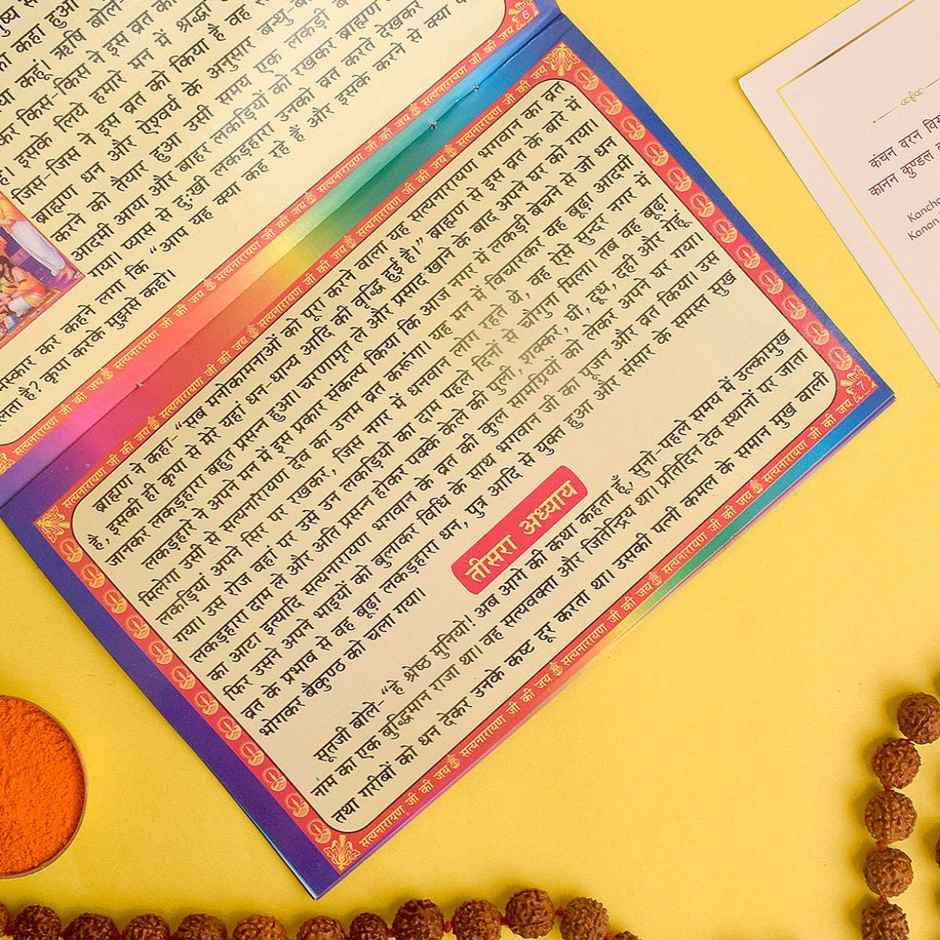 कर किस-किस ने इस व्रत
इसके लिये हमारे मन में श्रद्धा
जिस-जिस ने इस व्रत को किया है
ब्राह्मण धन और ऐश्वर्य के अनुसार बन्धु
करने को तैयार हुआ उसी समय एक लकड़ी
आदमी आया और बाहर लकड़ियों को रखकर ब्राह्मण
गया। प्यास से दुःखी लकड़हारा उनको व्रत करते देखकर
कर कहने लगा कि "आप यह क्या कह रहे हैं और इसके करने से क्या
है? कृपा करके मुझसे कहो।
6
सत्यनारायण जी की जय सत्यनारायण जी की जय सत्यनारायण जी की जय सत्यनारायण जी की जय
सत्यनारायण जी की जय सत्यनारायण जी की जय सत्यनारायण जी की जय सत्यनारायण जी की जय
ब्राह्मण ने कहा-"सब मनोकामनाओं को पूरा करने वाला यह सत्यनारायण भगवान का व्रत
है, इसकी ही कृपा से मेरे यहां धन-धान्य आदि की वृद्धि हुई है।" ब्राह्मण से इस व्रत के बारे में
जानकर लकड़हारा बहुत प्रसन्न हुआ। चरणामृत ले और प्रसाद खाने के बाद अपने घर को गया।
लकड़हारे ने अपने मन में इस प्रकार संकल्प किया कि आज नगर में लकड़ी बेचने से जो धन
मिलेगा उसी से सत्यनारायण देव का उत्तम व्रत करूंगा। यह मन में विचारकर वह बूढ़ा आदमी
लकड़ियां अपने सिर पर रखकर, जिस नगर में धनवान लोग रहते थे, वह ऐसे सुन्दर नगर में
गया। उस रोज वहां पर उसे उन लकड़ियों का दाम पहले दिनों से चौगुना मिला। तब वह बूढ़ा
लकड़हारा दाम ले और अति प्रसन्न होकर पक्के केले की फली, शक्कर, घी, दूध, दही और गेहूं
का आटा इत्यादि सत्यनारायण भगवान के व्रत की कुल सामग्रियों को लेकर अपने घर गया।
फिर उसने अपने भाइयों को बुलाकर विधि के साथ भगवान जी का पूजन और व्रत किया। उस
व्रत के प्रभाव से वह बूढ़ा लकड़हारा धन, पुत्र आदि से युक्त हुआ और संसार के समस्त सुख
भोगकर बैकुण्ठ को चला गया।
तीसरा अध्याय
सूतजी बोले- "हे श्रेष्ठ मुनियो! अब आगे की कथा कहता हूँ, सुनो-पहले समय में उल्कामुख
नाम का एक बुद्धिमान राजा था। वह सत्यवक्ता और जितेन्द्रिय था। प्रतिदिन देव स्थानों पर जाता
तथा गरीबों को धन देकर उनके कष्ट दूर करता था। उसकी पत्नी कमल के समान मुख वाली
7
सत्यनारायण जी की जय सत्यनारायण जी की जय सत्यनारायण जी की जय सत्यनारायण जी की जय
कंचन वरन
कानन कुण्डल